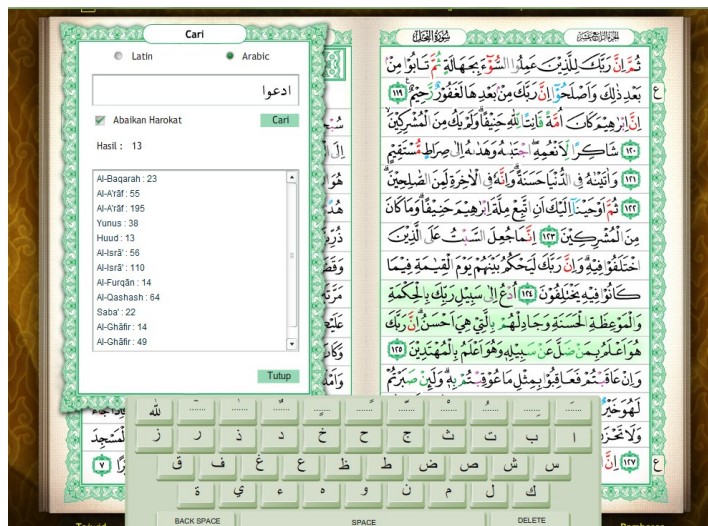 Cari
Latin
Arabic
ادعوا
Abaikan Harokat
Cari
Hasil : 13
Al-Baqarah : 23
Al-A'râf : 55
Al-A'râf : 195
Yunus : 38
Huud : 13
Al-Isrâ' : 56
Al-Isrâ' : 110
Al-Furqân : 14
Al-Qashash : 64
Saba' : 22
Al-Ghâfir : 14
Al-Ghâfir : 49
Tutup
سُوْرَةُ النَّحْل
ثُمَّ اِنَّ رَبَّكَ لِلَّذِيْنَ عَمِلُوا السُّوْۤءَ بِجَهَالَةٍ ثُمَّ تَابُوْا مِنْۢ
بَعْدِ ذٰلِكَ وَاَصْلَحُوْٓا اِنَّ رَبَّكَ مِنْۢ بَعْدِهَا لَغَفُوْرٌ رَّحِيْمٌ ۝١١٩
اِنَّ اِبْرٰهِيْمَ كَانَ اُمَّةً قَانِتًا لِّلّٰهِ حَنِيْفًاۗ وَلَمْ يَكُ مِنَ الْمُشْرِكِيْنَۙ
۝١٢٠ شَاكِرًا لِّاَنْعُمِهٖۗ اِجْتَبٰىهُ وَهَدٰىهُ اِلٰى صِرَاطٍ مُّسْتَقِيْمٍ
۝١٢١ وَاٰتَيْنٰهُ فِى الدُّنْيَا حَسَنَةً ۗوَاِنَّهٗ فِى الْاٰخِرَةِ لَمِنَ الصّٰلِحِيْنَۗ
۝١٢٢ ثُمَّ اَوْحَيْنَآ اِلَيْكَ اَنِ اتَّبِعْ مِلَّةَ اِبْرٰهِيْمَ حَنِيْفًاۗ وَمَا كَانَ
مِنَ الْمُشْرِكِيْنَ ۝١٢٣ اِنَّمَا جُعِلَ السَّبْتُ عَلَى الَّذِيْنَ
اخْتَلَفُوْا فِيْهِۗ وَاِنَّ رَبَّكَ لَيَحْكُمُ بَيْنَهُمْ يَوْمَ الْقِيٰمَةِ فِيْمَا
كَانُوْا فِيْهِ يَخْتَلِفُوْنَ ۝١٢٤ اُدْعُ اِلٰى سَبِيْلِ رَبِّكَ بِالْحِكْمَةِ
وَالْمَوْعِظَةِ الْحَسَنَةِ وَجَادِلْهُمْ بِالَّتِيْ هِيَ اَحْسَنُۗ اِنَّ رَبَّكَ
هُوَ اَعْلَمُ بِمَنْ ضَلَّ عَنْ سَبِيْلِهٖ وَهُوَ اَعْلَمُ بِالْمُهْتَدِيْنَ ۝١٢٥
وَاِنْ عَاقَبْتُمْ فَعَاقِبُوْا بِمِثْلِ مَا عُوْقِبْتُمْ بِهٖۗ وَلَىِٕنْ صَبَرْتُمْ
لَهُوَ خَيْرٌ
وَلَا تَحْزَنْ
۝١٢٧ اِنَّ
لله
ا ب ت ث ج ح خ د ذ ر ز
س ش ص ض ط ظ ع غ ف ق
ك ل م ن و ه ء ي ة
BACK SPACE
SPACE
DELETE